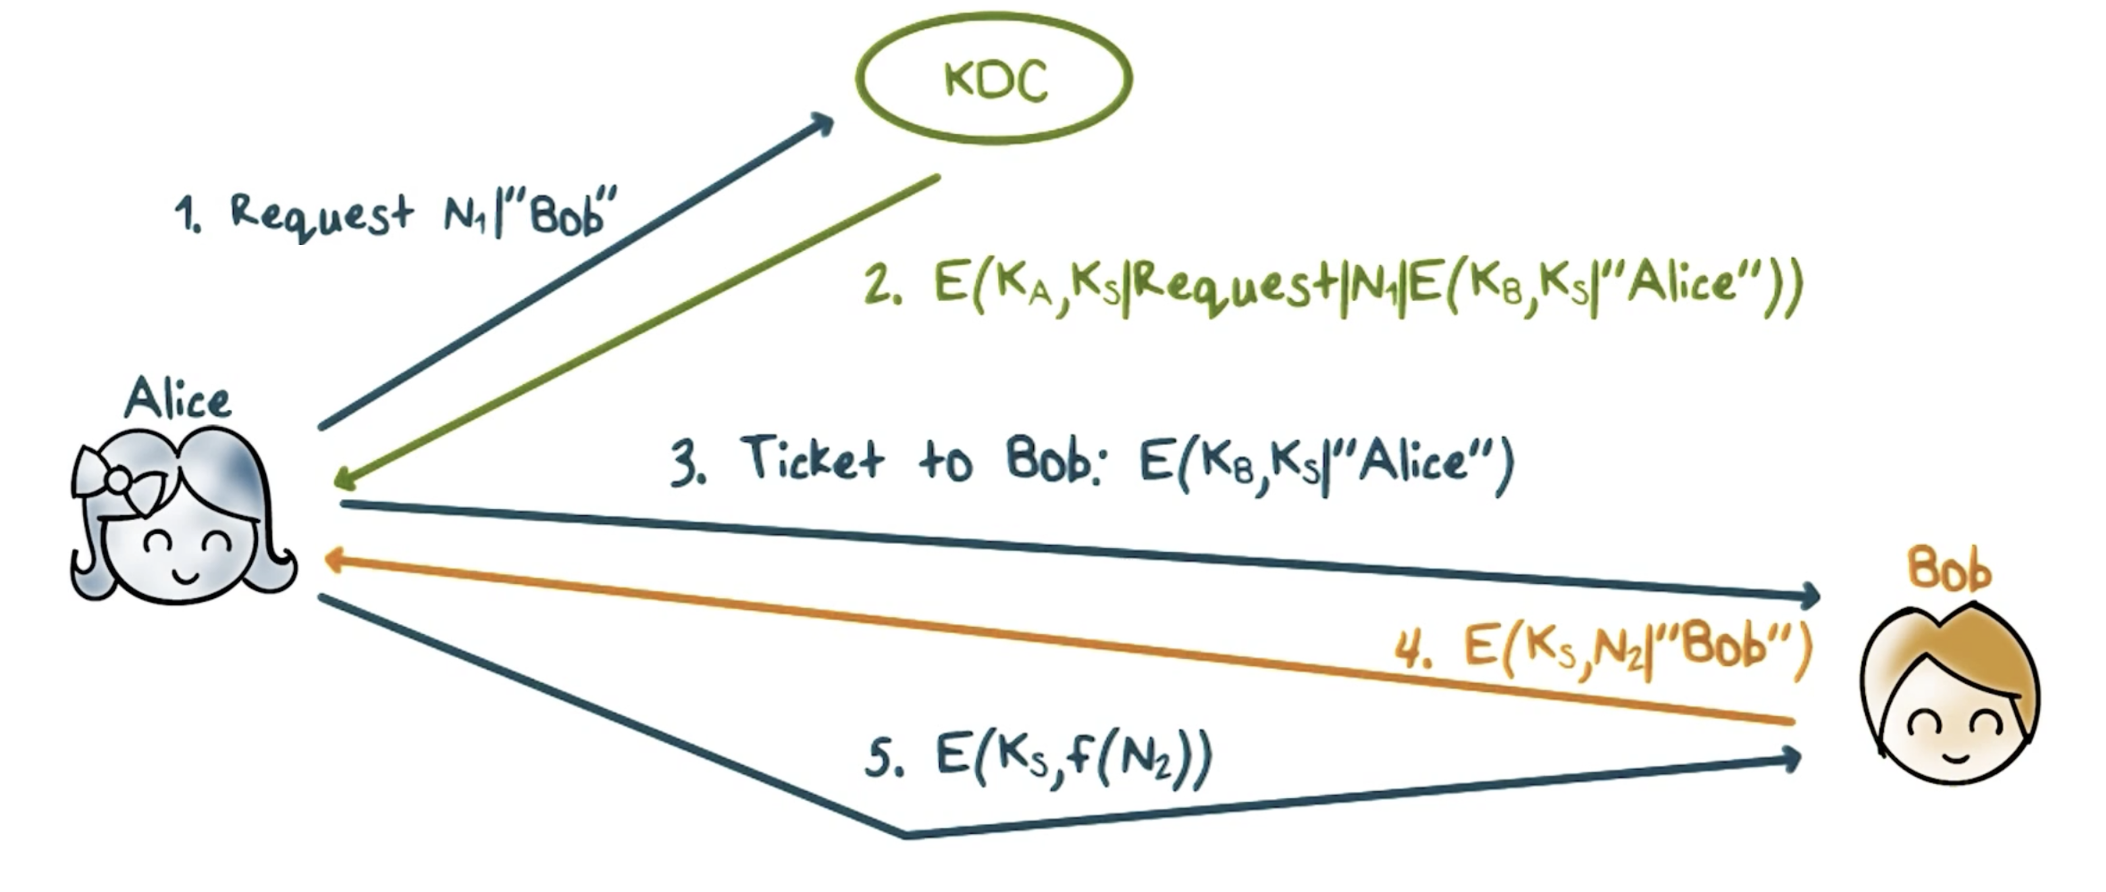 KDC
1. Request N₁|"Bob"
2. E(K_A,K_S|Request|N₁|E(K_B,K_S|"Alice"))
Alice
3. Ticket to Bob: E(K_B,K_S|"Alice")
Bob
4. E(K_S,N₂|"Bob")
5. E(K_S,f(N₂))